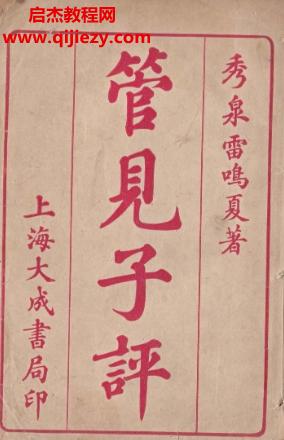 启杰教程网
www.qijiezy.com
秀泉雷鳴夏著
管見子評
上海大成書局印